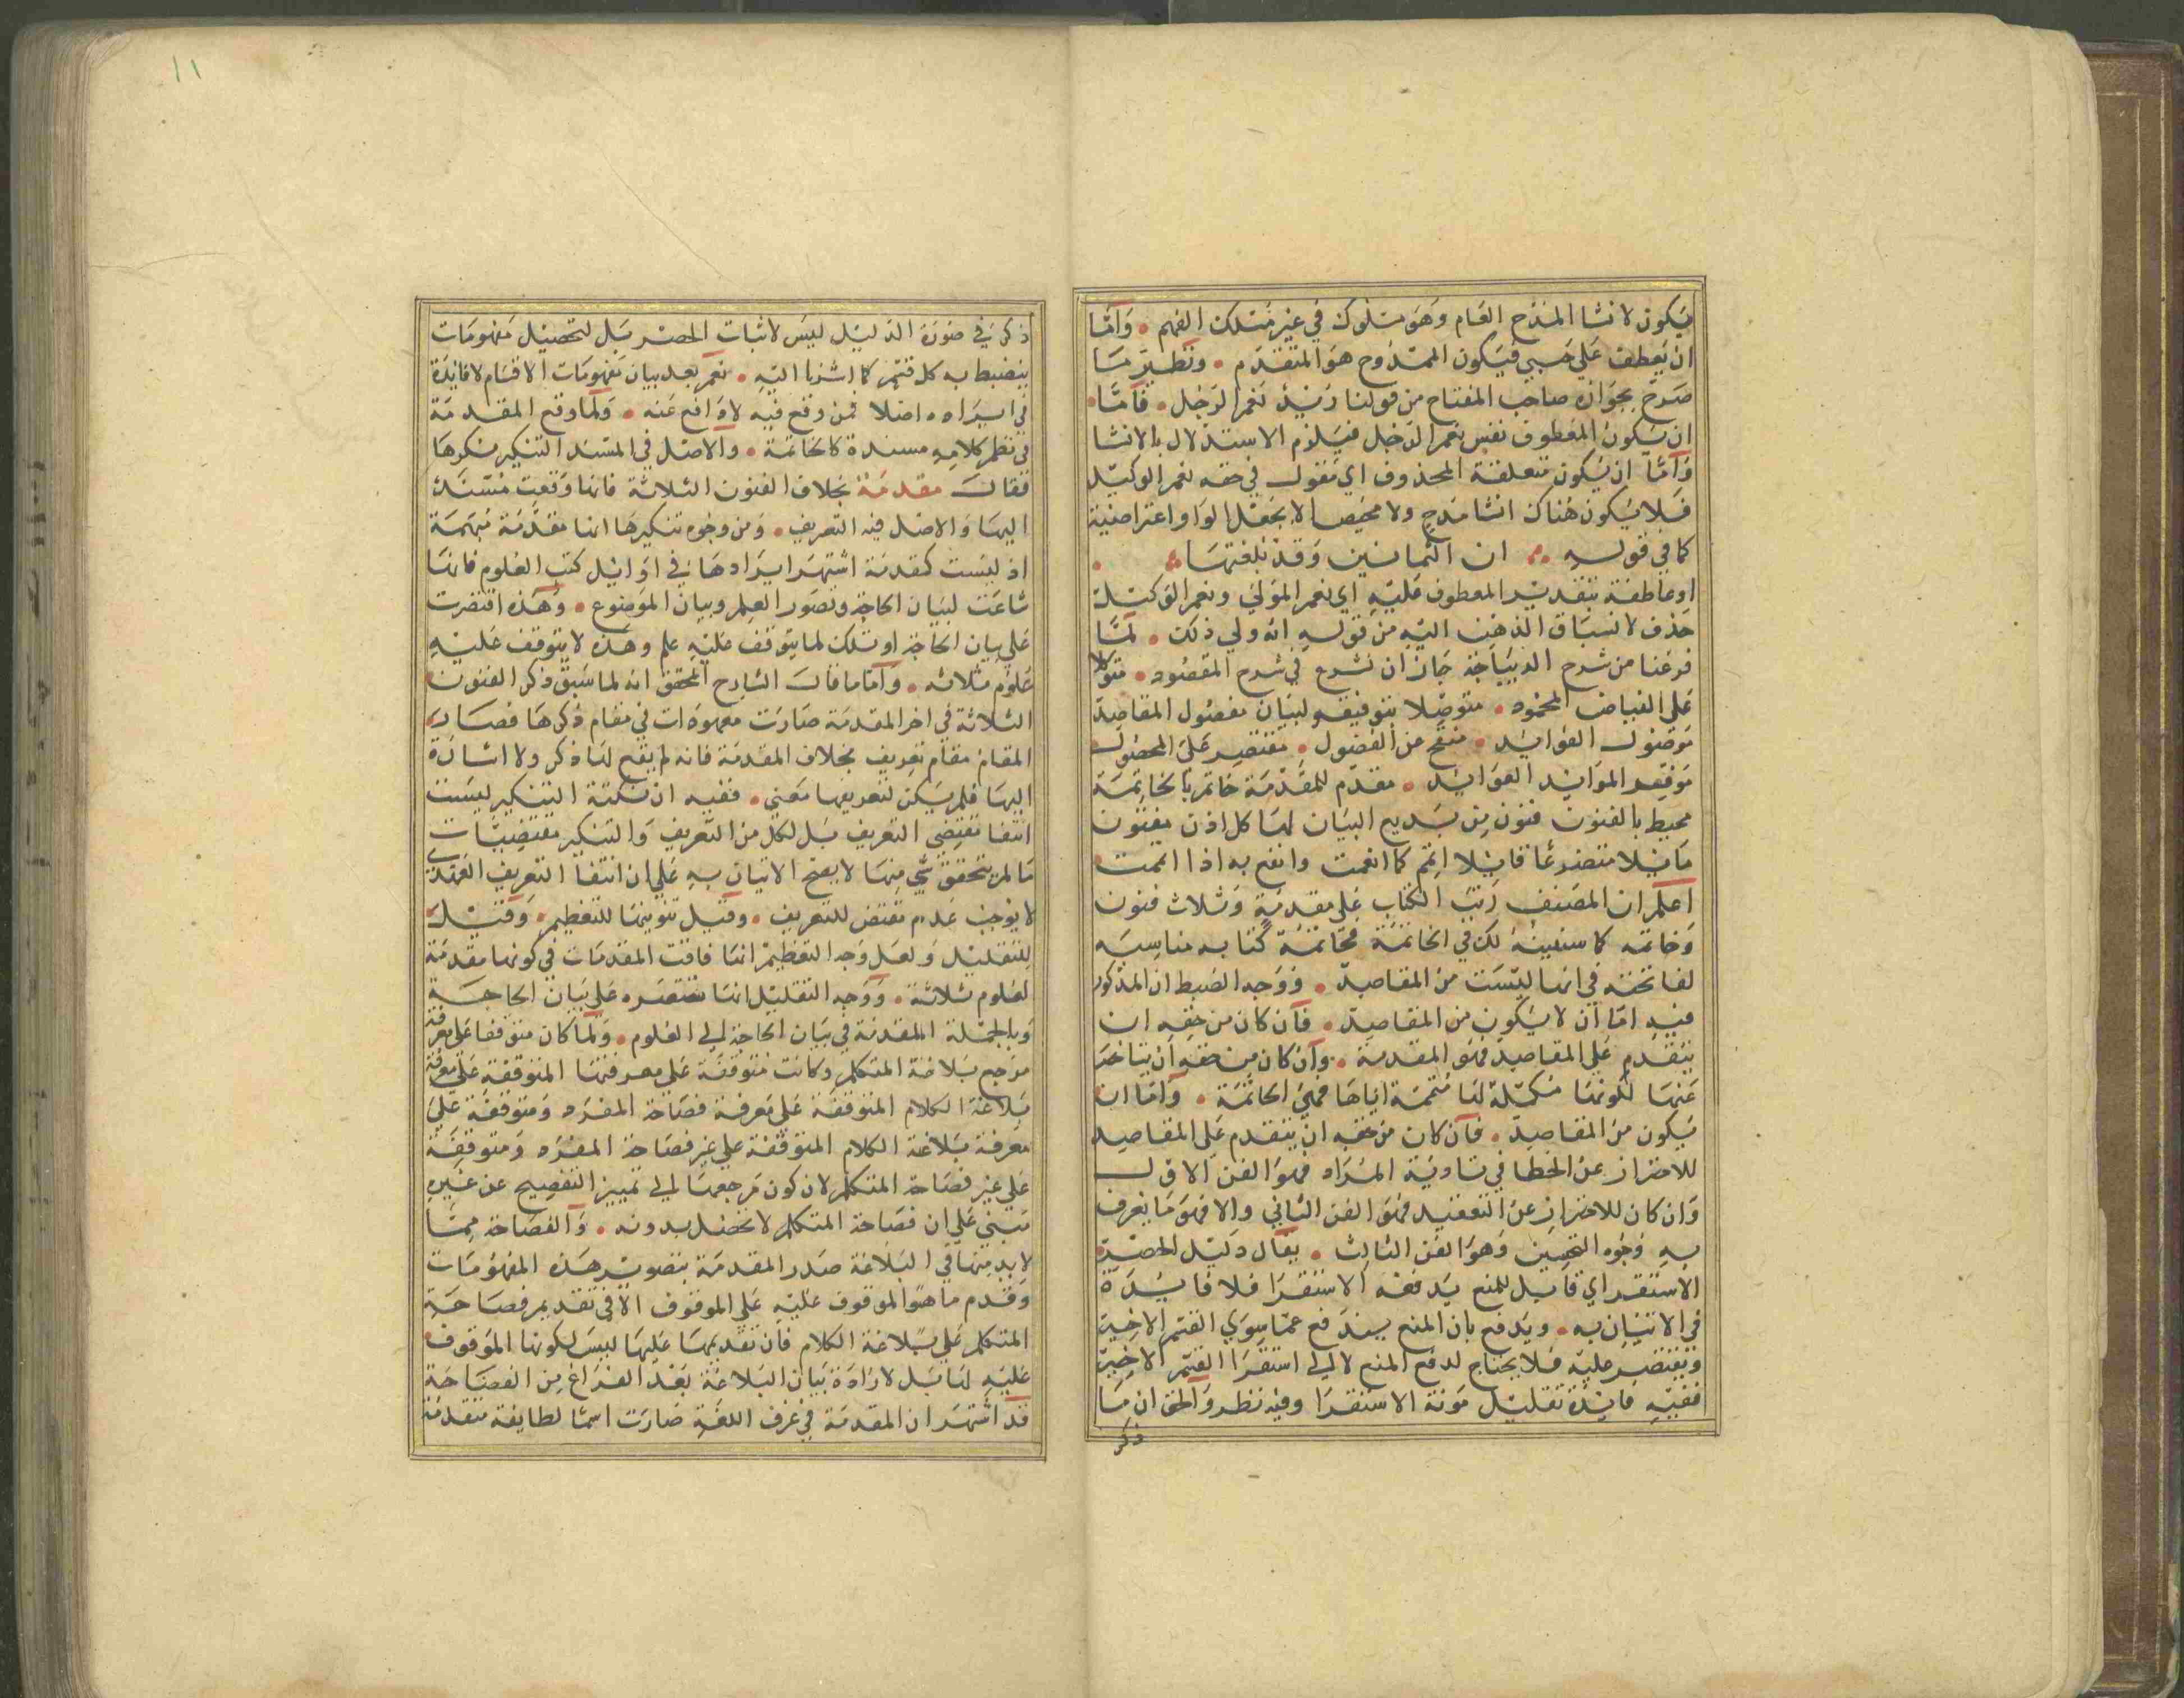 يكون لانشا المدح العام وهو سلوك في غير مسلك الفهم . واما
ان يعطف على حسبي فيكون الممدوح هو المتقدم . ونظير ما
صرح بجوازه صاحب المفتاح من قولنا زيد نعم الرجل . فاما
ان يكون المعطوف نفس نعم الرجل فيلزم الاستدلال بالانشا
واما ان يكون متعلقة المحذوف اي مقول في حقه نعم الوكيل
فلا يكون هناك انشا مدح ولا مخيصا لا بجعل الواو اعتراضية
كما في قوله ان الثمانين وقد بلغتها
او عاطفة بتقدير المعطوف عليه اي نعم المولى ونعم الوكيل
حذف لانسباق الذهن اليه من قوله انه ولي ذلك . لما
فرغنا من شرح الديباجة جاز ان نشرع في شرح المقصود . متوكلا
على الفياض المحمود . متوصلا بتوفيقه لبيان مفصول المقاصد
موصول الفوائد . منقح عن الفضول . مقتصر على المحصول
موقد الموائد العوائد . مقدم للمقدمة خاتم بالخاتمة
محيط بالفنون فنون من بديع البيان لها كل اذن مفتون
مايلا متضرعا قايلا اتم كما انعمت وانفع به اذا اتممت
اعلم ان المصنف رتب الكتاب على مقدمة وثلاث فنون
وخاتمه كما سنبينه لك في الخاتمة فخاتمة كتابه مناسبه
لفاتحته في انها ليست من المقاصد . ووجه الضبط ان المذكور
فيه اما ان لا يكون من المقاصد . فان كان من حقه ان
يتقدم على المقاصد فهو المقدمة . وان كان من حقه ان يتاخر
عنها لكونها مكملة لها متممة اياها فهي الخاتمة . واما ان
يكون من المقاصد . فان كان من حقه ان يتقدم على المقاصد
للاحتراز عن الخطا في تادية المراد فهو الفن الاول
وان كان للاحتراز عن التعقيد فهو الفن الثاني والا فهو ما يعرف
به وجوه التحسين وهو الفن الثالث . يقال دليل الحصر
الاستقراي قابل للمنع يدفعه الاستقرا فلا فايدة
في الاتيان به . ويدفع بان المنع يندفع عما سوى القسم الاخير
ويقتصر عليه فلا يحتاج لدفع المنع لا الى استقرا القسم الاخير
ففيه فايدة تقليل مونة الاستقرا وفيه نظر والحق ان ما
ذكر
١١
ذكر في صورة الدليل ليس لاثبات الحصر بل لتحصيل مفهومات
ينضبط به كل قسم كما اشرنا اليه . نعم بعد بيان مفهومات الاقسام لا فايدة
في ايراده اصلا فمن وقع فيه لا دافع عنه . ولما وقع المقدمة
في نظم كلامه مسندة كالخاتمة . والاصل في المسند التنكير نكرها
فقال مقدمة بخلاف الفنون الثلاثة فانها وقعت مسندا
اليها والاصل فيه التعريف . ومن وجوه تنكيرها انها مقدمة مبهمة
اذ ليست كمقدمة اشتهر ايرادها في اوايل كتب العلوم فانها
شاعت لبيان الحاجة وتصور العلم وبيان الموضوع . وهذه اقتصرت
على بيان الحاجة او تلك لما يتوقف عليه علم وهذه لا يتوقف عليه
علوم ثلاثه . واما ما قال الشارح المحقق انه لما سبق ذكر الفنون
الثلاثة في اخر المقدمة صارت معهودات في مقام ذكرها فصار
المقام مقام تعريف بخلاف المقدمة فانه لم يقع لها ذكر ولا اشارة
اليها فلم يكن لتعريفها معنى . ففيه ان نكتة التنكير ليست
انتفا مقتضى التعريف بل لكل من التعريف والتنكير مقتضيات
ما لم يتحقق شي منها لا يصح الاتيان به على ان انتفا التعريف العهدي
لا يوجب عدم مقتض للتعريف . وقيل تنوينها للتعظيم . وقيل
للتقليل ولعل وجه التعظيم انها فاقت المقدمات في كونها مقدمة
لعلوم ثلاثة . ووجه التقليل انها مقتصره على بيان الحاجة
وبالجملة المقدمة في بيان الحاجة الى العلوم . ولما كان متوقفا على معرفة
مرجع بلاغة المتكلم وكانت متوقفة على معرفتها المتوقفة على معرفة
بلاغة الكلام المتوقفة على معرفة فصاحة المفرد ومتوقفة على
معرفة بلاغة الكلام المتوقفة على غير فصاحة المفرد ومتوقفة
على غير فصاحة المتكلم لان كون مرجعها الى تمييز الفصيح عن غيره
مبني على ان فصاحة المتكلم لا تحصل بدونه . والفصاحة مما
لابد منها في البلاغة صدر المقدمة بتصوير هذه المفهومات
وقدم ما هو الموقوف عليه على الموقوف الا في تقديم فصاحة
المتكلم على بلاغة الكلام فان تقديمها عليها ليس لكونها الموقوف
عليه لها بل لارادة بيان البلاغة بعد الفراغ من الفصاحة
قد اشتهر ان المقدمة في عرف اللغة صارت اسما لطايفة متقدمة